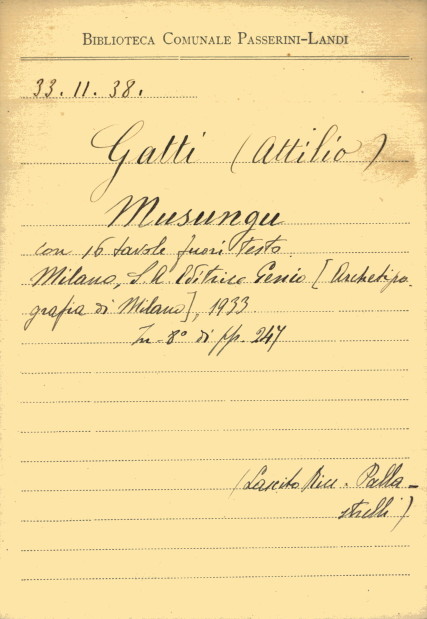 BIBLIOTECA COMUNALE PASSERINI-LANDI
33.11.38.
Gatti (Attilio)
Musungu
con 16 tavole fuori testo.
Milano, S.A. Editrice Genio [Archetipo-
grafia di Milano], 1933
In-8° di pp. 247
(Lascito Ricc. Palla-
strelli)